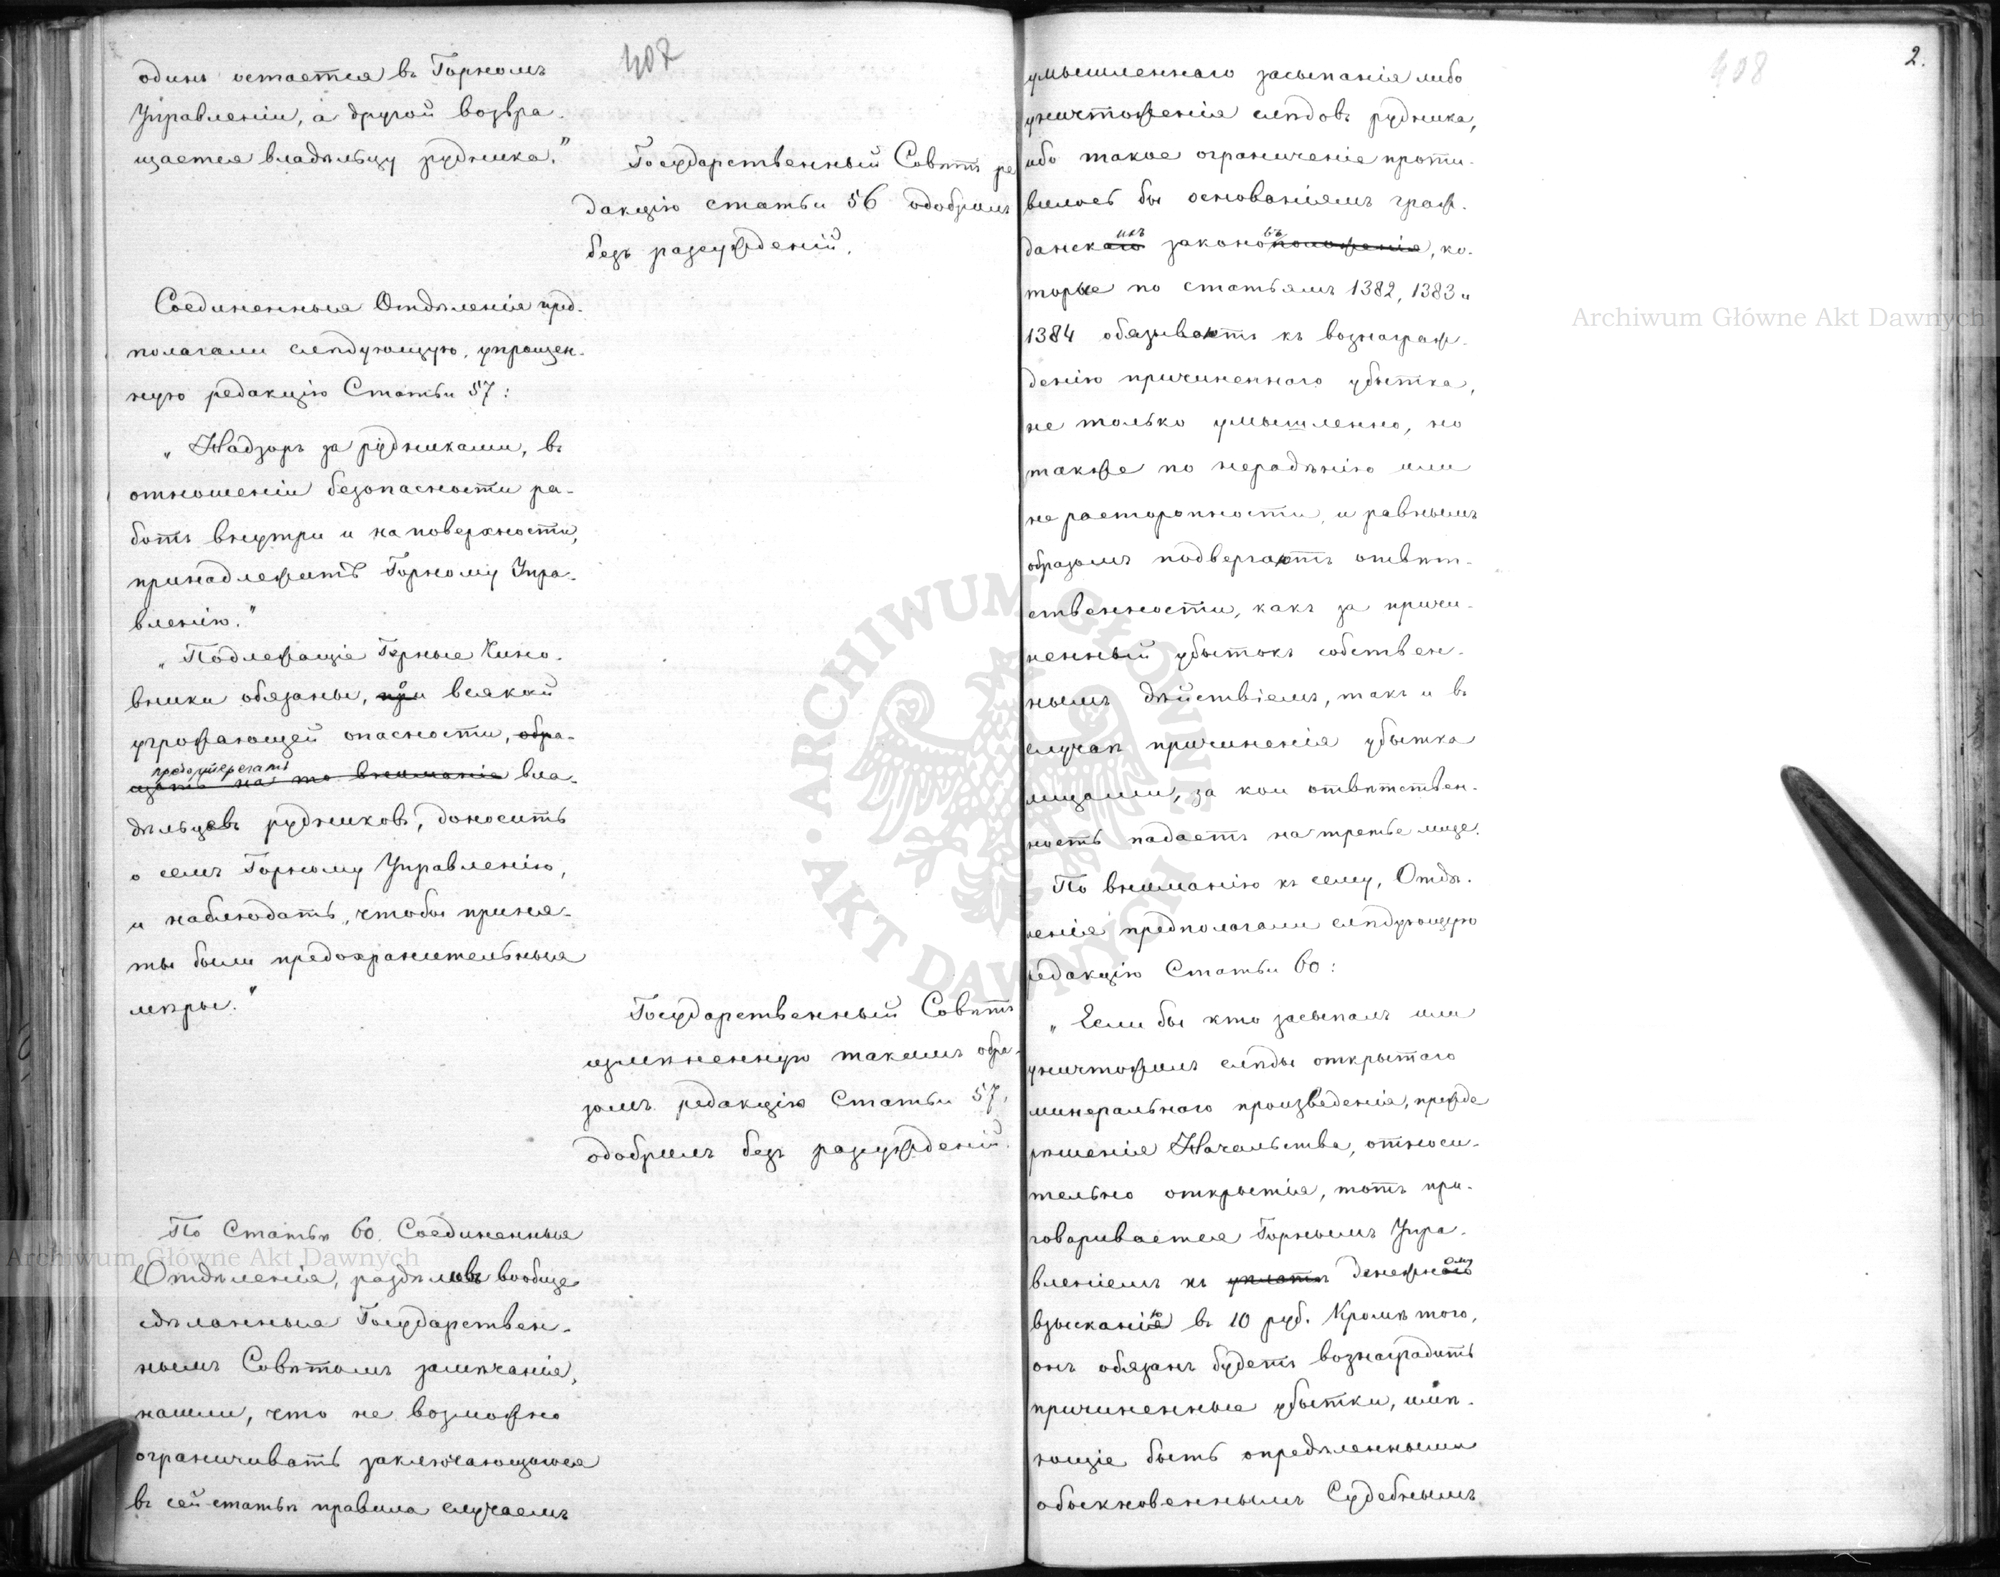 407
одинъ остается въ Горномъ
Управленіи, а другой возвра-
щается владѣльцу рудника."
Государственный Совѣтъ ре
дакцію статьи 56 одобрилъ
безъ разсужденій.
Соединенныя Отдѣленія пред-
полагали слѣдующую, упрощен-
ную редакцію Статьи 57:
„Надзоръ за рудниками, въ
отношеніи безопасности ра-
ботъ внутри и на поверхности,
принадлежитъ Горному Упра-
вленію."
„Подлежащіе Горные Чино-
вники обязаны, при о всякой
угрожающей опасности, обра-
предостерегать
щать на то вниманіе вла-
дѣльцевъ рудниковъ, доносить
о семъ Горному Управленію,
и наблюдать, чтобы приня-
ты были предохранительныя
мѣры."
Государственный Совѣтъ
измѣненную такимъ обра-
зомъ редакцію Статьи 57,
одобрилъ безъ разсужденій.
По Статьѣ 60. Соединенныя
Отдѣленія, раздѣливъ вообще
сдѣланныя Государствен-
нымъ Совѣтомъ замѣчанія,
нашли, что не возможно
ограничивать заключающагося
въ сей статьѣ правила случаемъ
408
2.
умышленнаго засыпанія либо
уничтоженія слѣдовъ рудника,
ибо такое ограниченіе проти-
вилось бы основаніямъ граж-
ихъ въ
данскаго законоположенія, ко-
торые по статьямъ 1382, 1383 и
1384 обязываютъ къ вознаграж-
денію причиненнаго убытка,
не только умышленно, но
также по нерадѣнію или
не расторопности, и равнымъ
образомъ подвергаютъ отвѣт-
ственности, какъ за причи-
ненный убытокъ собствен-
нымъ дѣйствіемъ, такъ и въ
случаѣ причиненія убытка
лицами, за кои отвѣтствен-
ность падаетъ на третье лице.
По вниманію къ сему, Отдѣ-
ленія предполагали слѣдующую
редакцію Статьи 60:
„Если бы кто засыпалъ или
уничтожилъ слѣды открытаго
минеральнаго произведенія, прежде
рѣшенія Начальства, относи-
тельно открытія, тотъ при-
говаривается Горнымъ Упра-
вленіемъ къ уплатѣ денежному
взысканію въ 10 руб. Кромѣ того,
онъ обязанъ будетъ вознаградить
причиненные убытки, имѣ-
ющіе быть опредѣленными
обыкновеннымъ Судебнымъ
Archiwum Główne Akt Dawnych
Archiwum Główne Akt Dawnych
ARCHIWUM GŁÓWNE AKT DAWNYCH